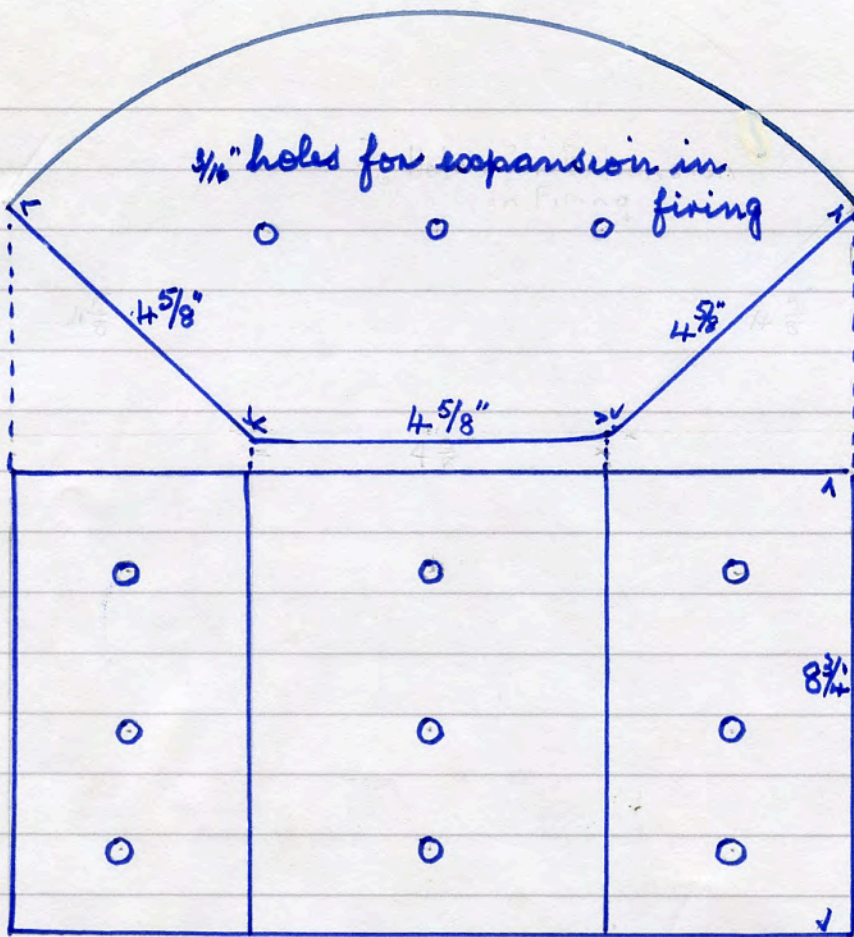 3/16" holes for expansion in
firing
4 5/8"
4 5/8"
4 5/8"
8 3/4"